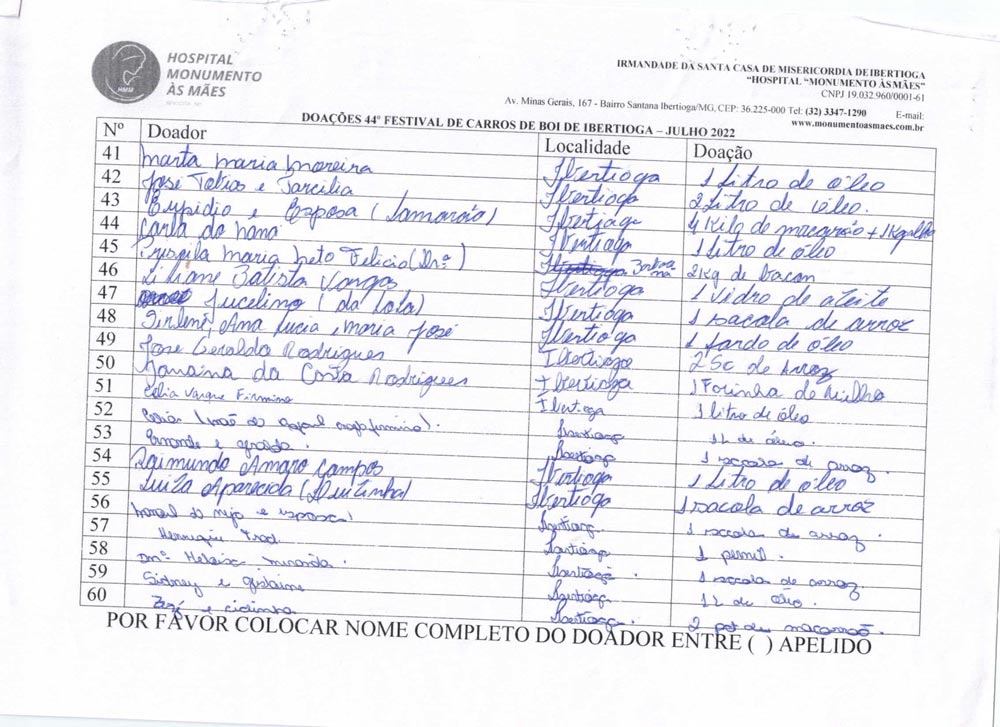 HOSPITAL
MONUMENTO
ÀS MÃES
HMM
IRMANDADE DA SANTA CASA DE MISERICORDIA DE IBERTIOGA
“HOSPITAL “MONUMENTO ÀS MÃES”
CNPJ 19.032.960/0001-61
Av. Minas Gerais, 167 - Bairro Santana Ibertioga/MG, CEP: 36.225-000 Tel: (32) 3347-1290 E-mail:
www.monumentoasmaes.com.br
DOAÇÕES 44º FESTIVAL DE CARROS DE BOI DE IBERTIOGA – JULHO 2022
Nº Doador Localidade Doação
41 Marta Maria Moreira Ibertioga 1 Litro de óleo
42 José Tobias e Tarcilia Ibertioga 2 Litro de óleo.
43 Eupidio e Esposa (Lamarão) Ibertioga 4 Kilo de macarrão + 1 Kg alho
44 Carla do Nana Ibertioga 1 Litro de óleo
45 Priscila Maria Neto Felicio (Drª) 2 Kg de bacon
46 Liliane Batista Vargas Ibertioga 1 Vidro de azeite
47 Jucelino (da Lota) Ibertioga 1 sacola de arroz
48 Sirlene, Ana Lucia e Maria José Ibertioga 1 fardo de óleo
49 José Geraldo Rodrigues Ibertioga 2 Sc de Arroz
50 Janaina da Costa Rodrigues Ibertioga 1 Farinha de Milho
51 Célia Vargue Firmino Ibertioga 1 litro de óleo
52 Ibertioga 1 L de óleo.
53 e Geralda. Ibertioga 1 sacola de arroz.
54 Raimundo Amaro Campos Ibertioga 1 Litro de óleo
55 Luiza Aparecida (Luizinha) Ibertioga 1 sacola de arroz
56 e esposa Ibertioga 1 sacola de arroz.
57 Henrique Ibertioga 1 pernil.
58 Heloisa Miranda. Ibertioga 1 sacola de arroz
59 Sidney e Gislaine Ibertioga 1 L de óleo.
60 Zezé e Cidinha Ibertioga. 2 pct de macarrão.
POR FAVOR COLOCAR NOME COMPLETO DO DOADOR ENTRE ( ) APELIDO